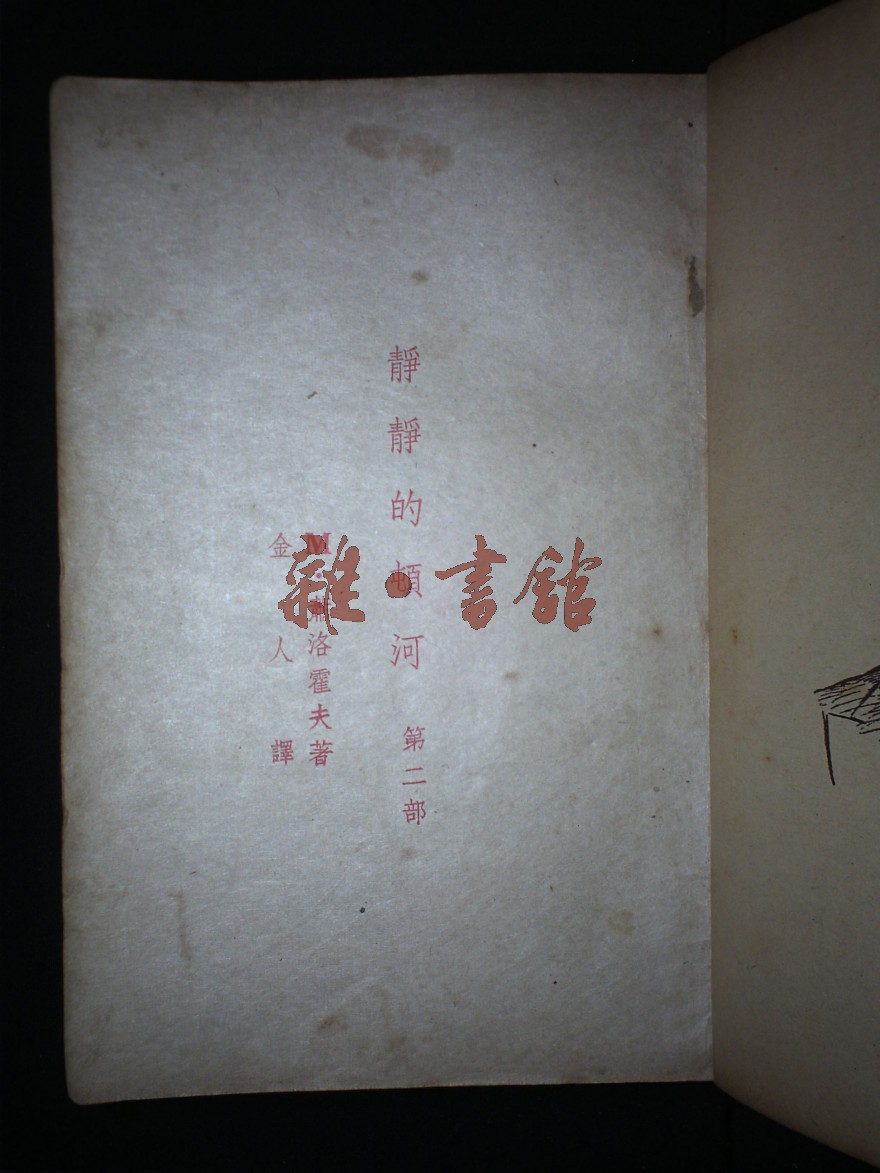 靜靜的頓河 第二部
M·蕭洛霍夫著
金人譯
雜·書舘